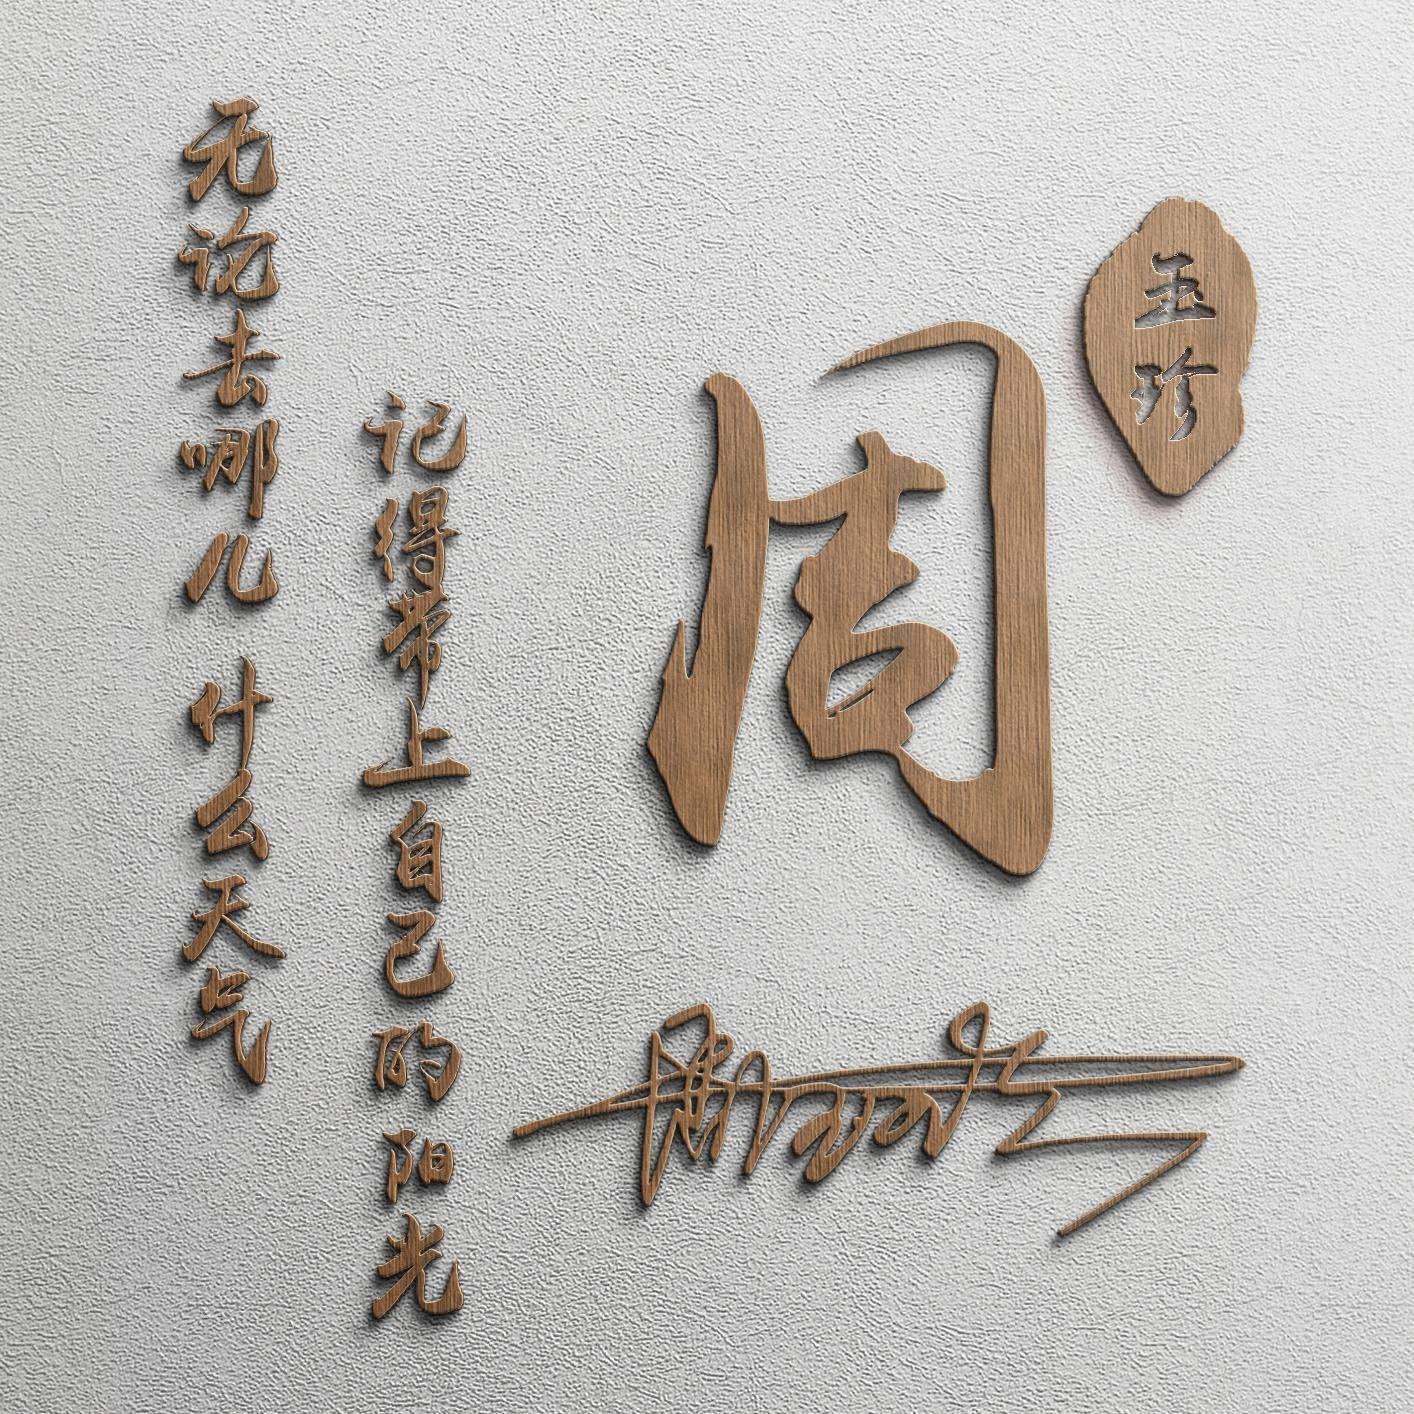 无论去哪儿 什么天气
记得带上自己的阳光
周
玉珍